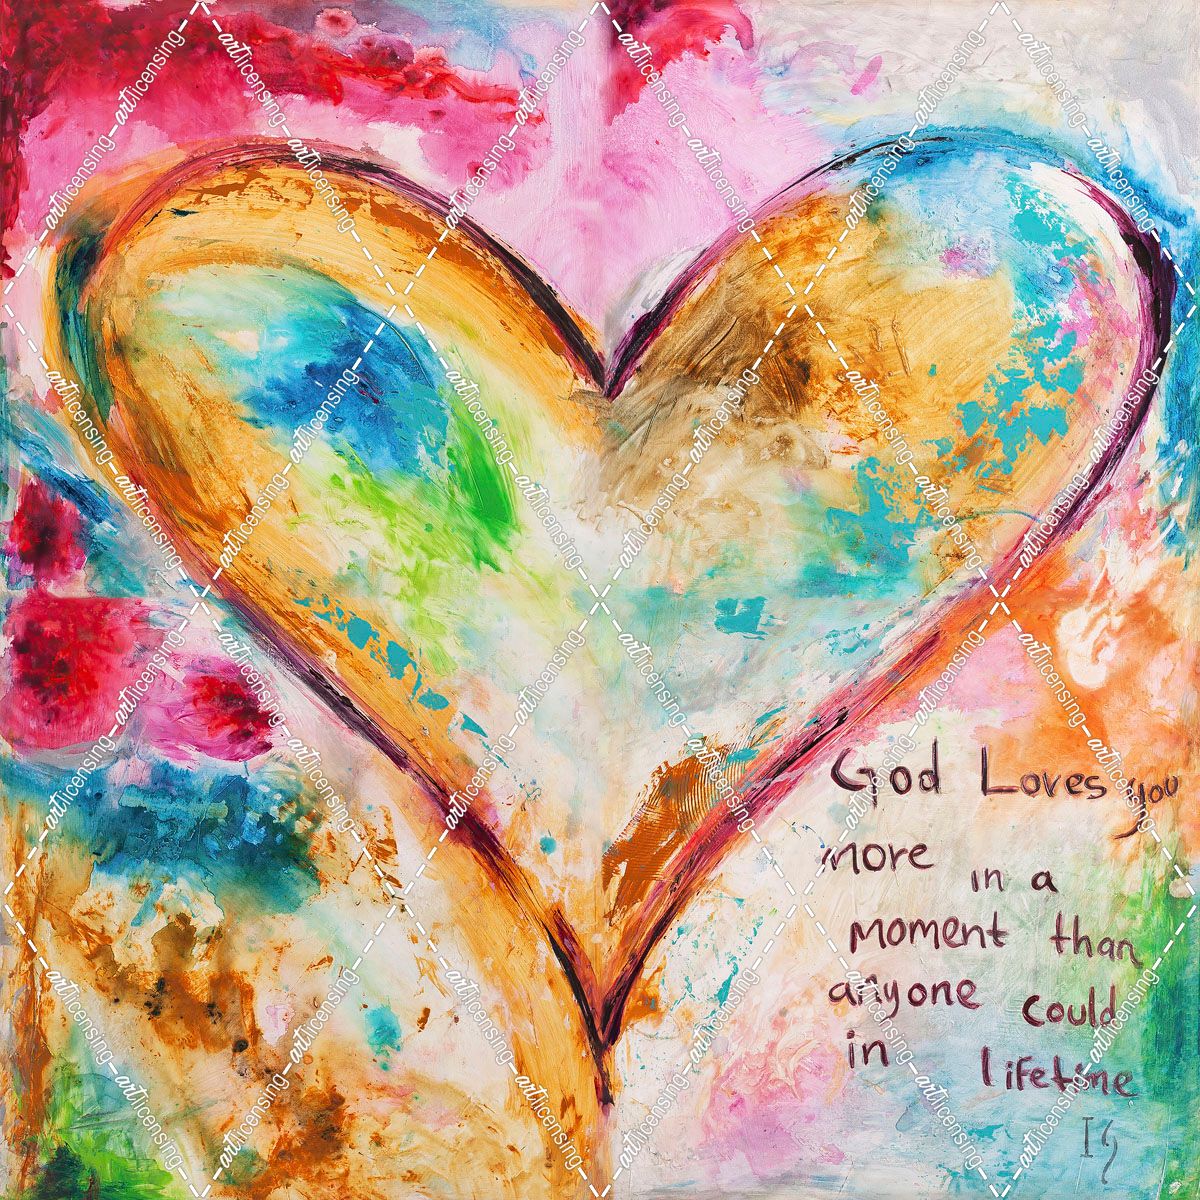 God Loves you
more in a
moment than
anyone could
in lifetime
IS
artlicensing